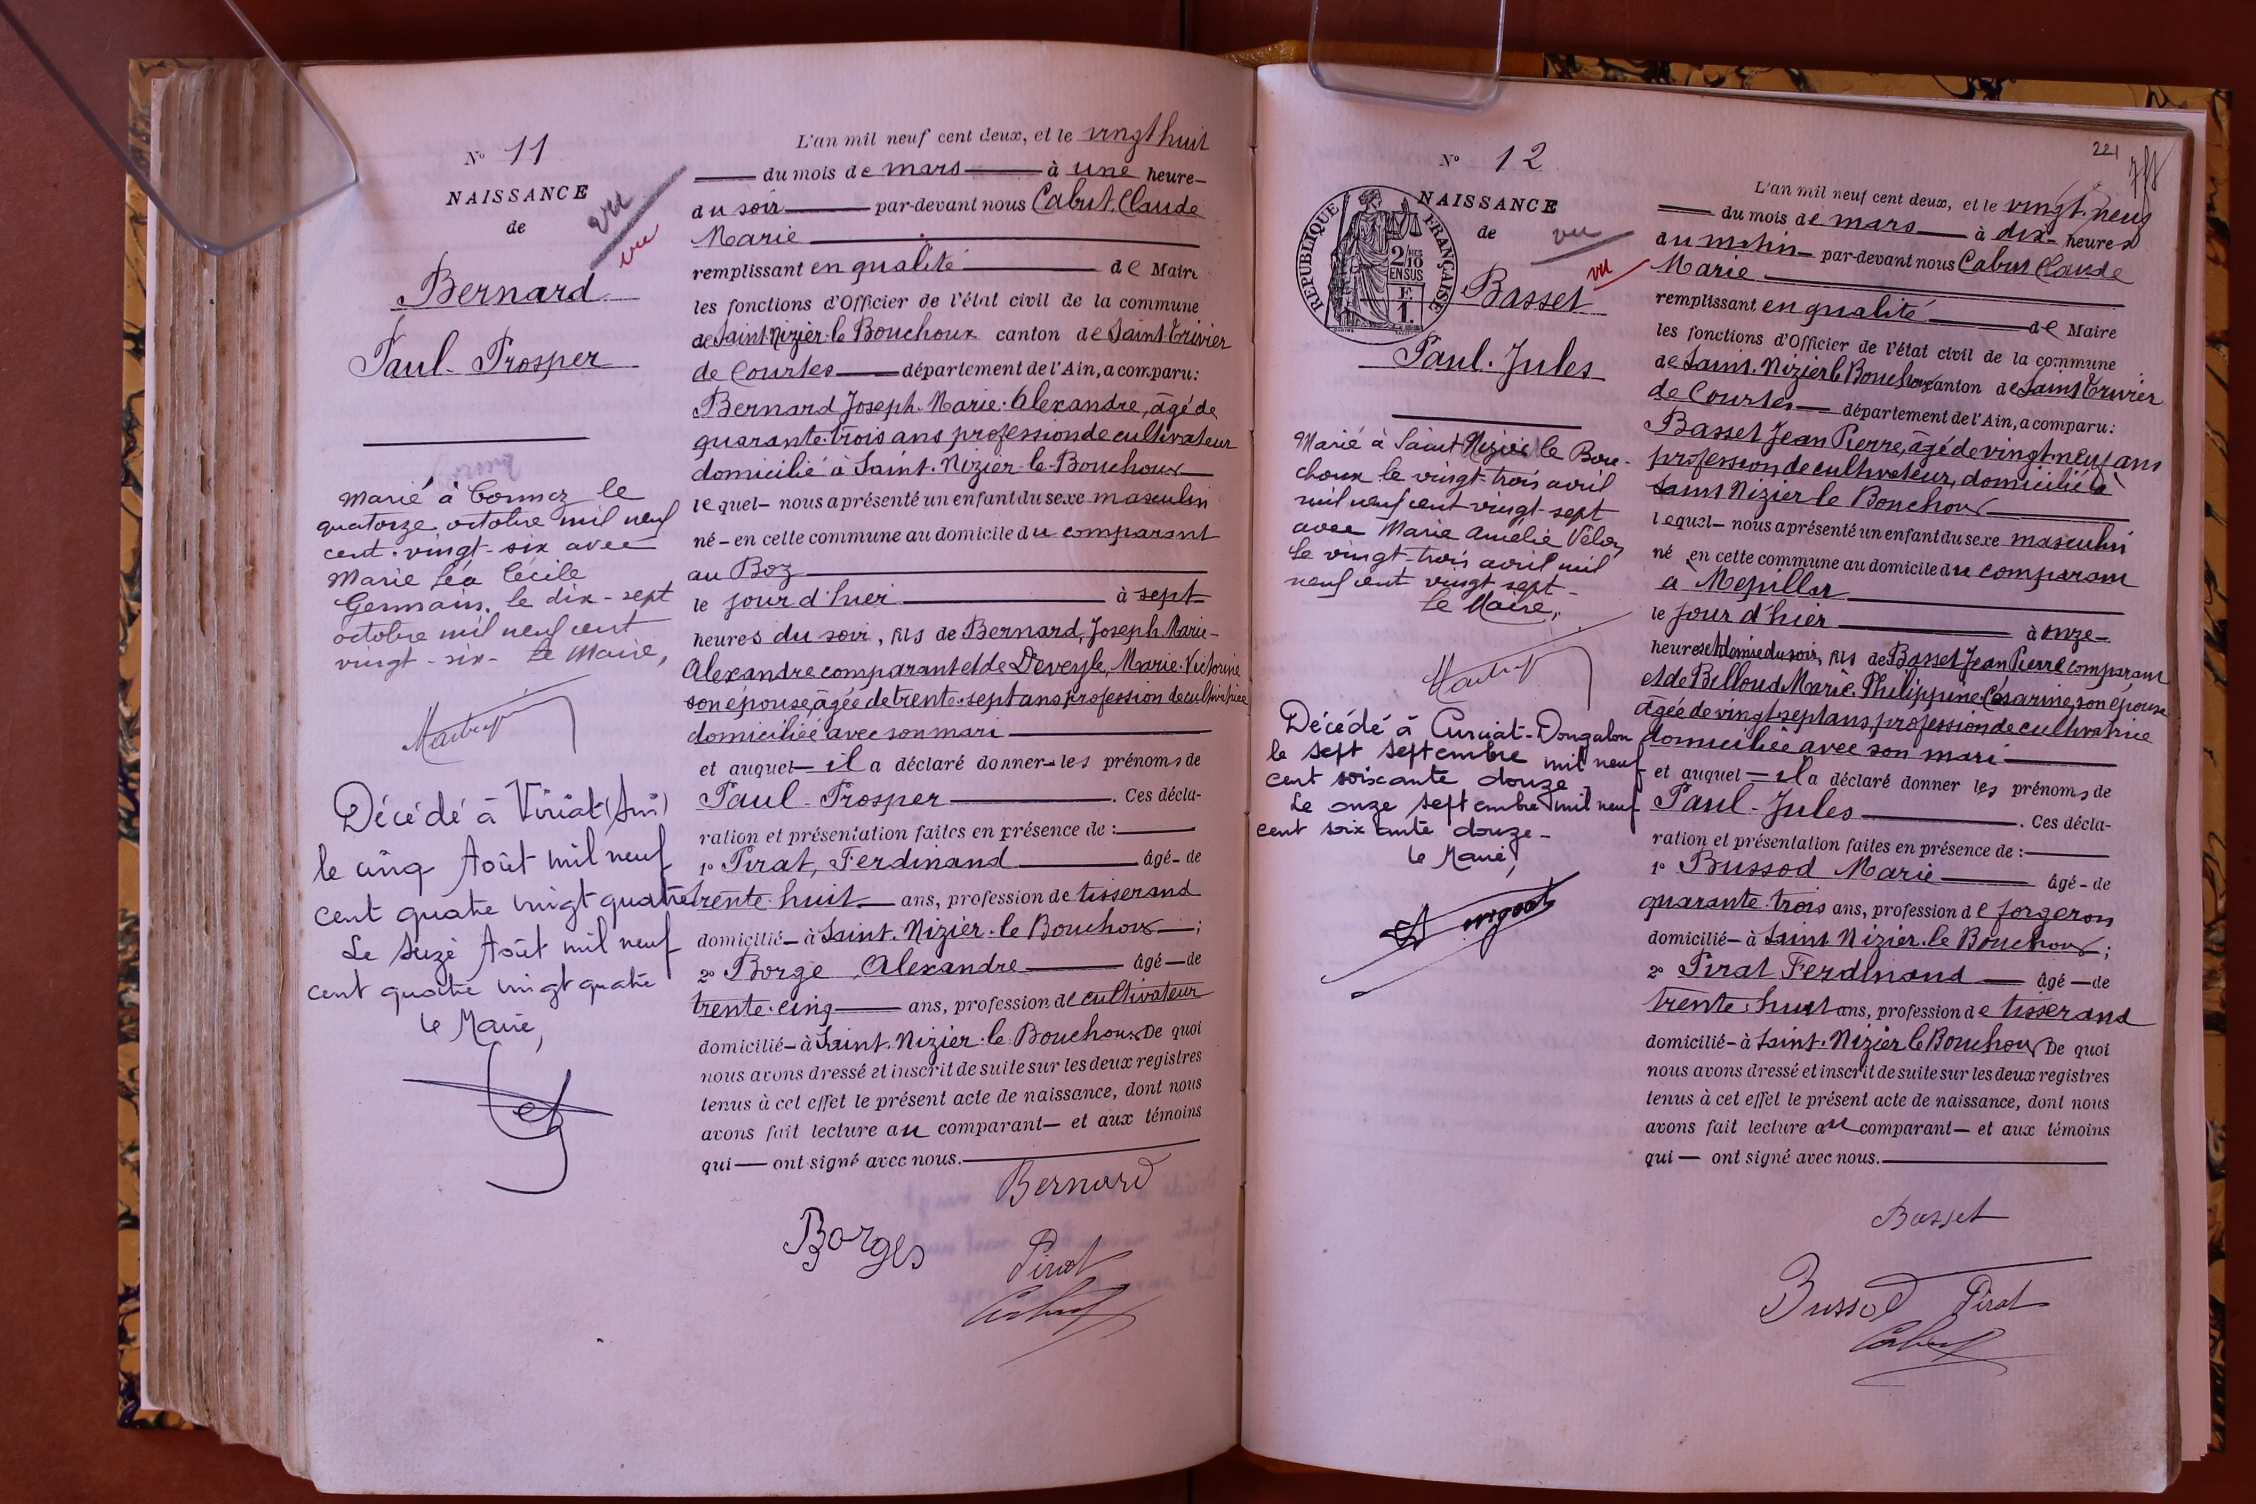 N° 11
NAISSANCE
de
vu
vu
Bernard
Paul-Prosper
Marié à Connoz le
quatorze octobre mil neuf
cent vingt-six avec
Marie Léa Cécile
Germain. le dix-sept
octobre mil neuf cent
vingt-six- Le Maire,
Décédé à Viriat (Ain)
le cinq Août mil neuf
cent quatre vingt quatre
Le seize Août mil neuf
cent quatre vingt quatre
Le Maire,
L'an mil neuf cent deux, et le vingt huit
du mois de mars à une heure
du soir par-devant nous Cabut Claude
Marie
remplissant en qualité de Maire
les fonctions d'Officier de l'état civil de la commune
de Saint-Nizier-le Bouchoux canton de Saint-Trivier
de Courtes département de l'Ain, a comparu:
Bernard Joseph-Marie-Alexandre, âgé de
quarante-trois ans profession de cultivateur
domicilié à Saint-Nizier-le-Bouchoux
lequel nous a présenté un enfant du sexe masculin
né - en cette commune au domicile du comparant
au Boz
le jour d'hier à sept
heures du soir, fils de Bernard, Joseph-Marie-
Alexandre comparant et de Deveyle, Marie-Victorine
son épouse, âgée de trente-sept ans, profession de cultivatrice
domiciliée avec son mari
et auquel il a déclaré donner les prénoms de
Paul-Prosper . Ces décla-
ration et présentation faites en présence de :
1° Pirat, Ferdinand âgé de
trente-huit ans, profession de tisserand
domicilié à Saint-Nizier-le Bouchoux ;
2° Borge Alexandre âgé de
trente-cinq ans, profession de cultivateur
domicilié à Saint-Nizier-le Bouchoux De quoi
nous avons dressé et inscrit de suite sur les deux registres
tenus à cet effet le présent acte de naissance, dont nous
avons fait lecture au comparant et aux témoins
qui ont signé avec nous.
Bernard
Borges
Pirat
Cabut
221
N° 12
NAISSANCE
de
vu
vu
REPUBLIQUE FRANÇAISE
2/10 EN SUS
Basset
Paul-Jules
Marié à Saint Nizier le Bou-
choux le vingt-trois avril
mil neuf cent vingt-sept
avec Marie Amélie Velon
le vingt-trois avril mil
neuf cent vingt sept-
Le Maire,
Décédé à Curciat-Dongalon
le sept septembre mil neuf
cent soixante douze
Le onze septembre mil neuf
cent soixante douze-
Le Maire,
L'an mil neuf cent deux, et le vingt-neuf
du mois de mars à dix heures
du matin par-devant nous Cabut Claude
Marie
remplissant en qualité de Maire
les fonctions d'Officier de l'état civil de la commune
de Saint-Nizier le Bouchoux canton de Saint Trivier
de Courtes département de l'Ain, a comparu:
Basset Jean Pierre, âgé de vingt-neuf ans
profession de cultivateur, domicilié à
Saint Nizier-le Bouchoux
lequel nous a présenté un enfant du sexe masculin
né en cette commune au domicile du comparant
à Mepillat
le jour d'hier à onze
heures et demie du soir, fils de Basset Jean Pierre comparant
et de Billoud Marie-Philippine Césarine, son épouse
âgée de vingt-sept ans, profession de cultivatrice
domiciliée avec son mari
et auquel il a déclaré donner les prénoms de
Paul-Jules . Ces décla-
ration et présentation faites en présence de :
1° Bussod Marie âgé de
quarante-trois ans, profession de forgeron
domicilié à Saint Nizier-le Bouchoux ;
2° Pirat Ferdinand âgé de
trente-huit ans, profession de tisserand
domicilié à Saint-Nizier le Bouchoux De quoi
nous avons dressé et inscrit de suite sur les deux registres
tenus à cet effet le présent acte de naissance, dont nous
avons fait lecture au comparant et aux témoins
qui ont signé avec nous.
Basset
Bussod Pirat
Cabut